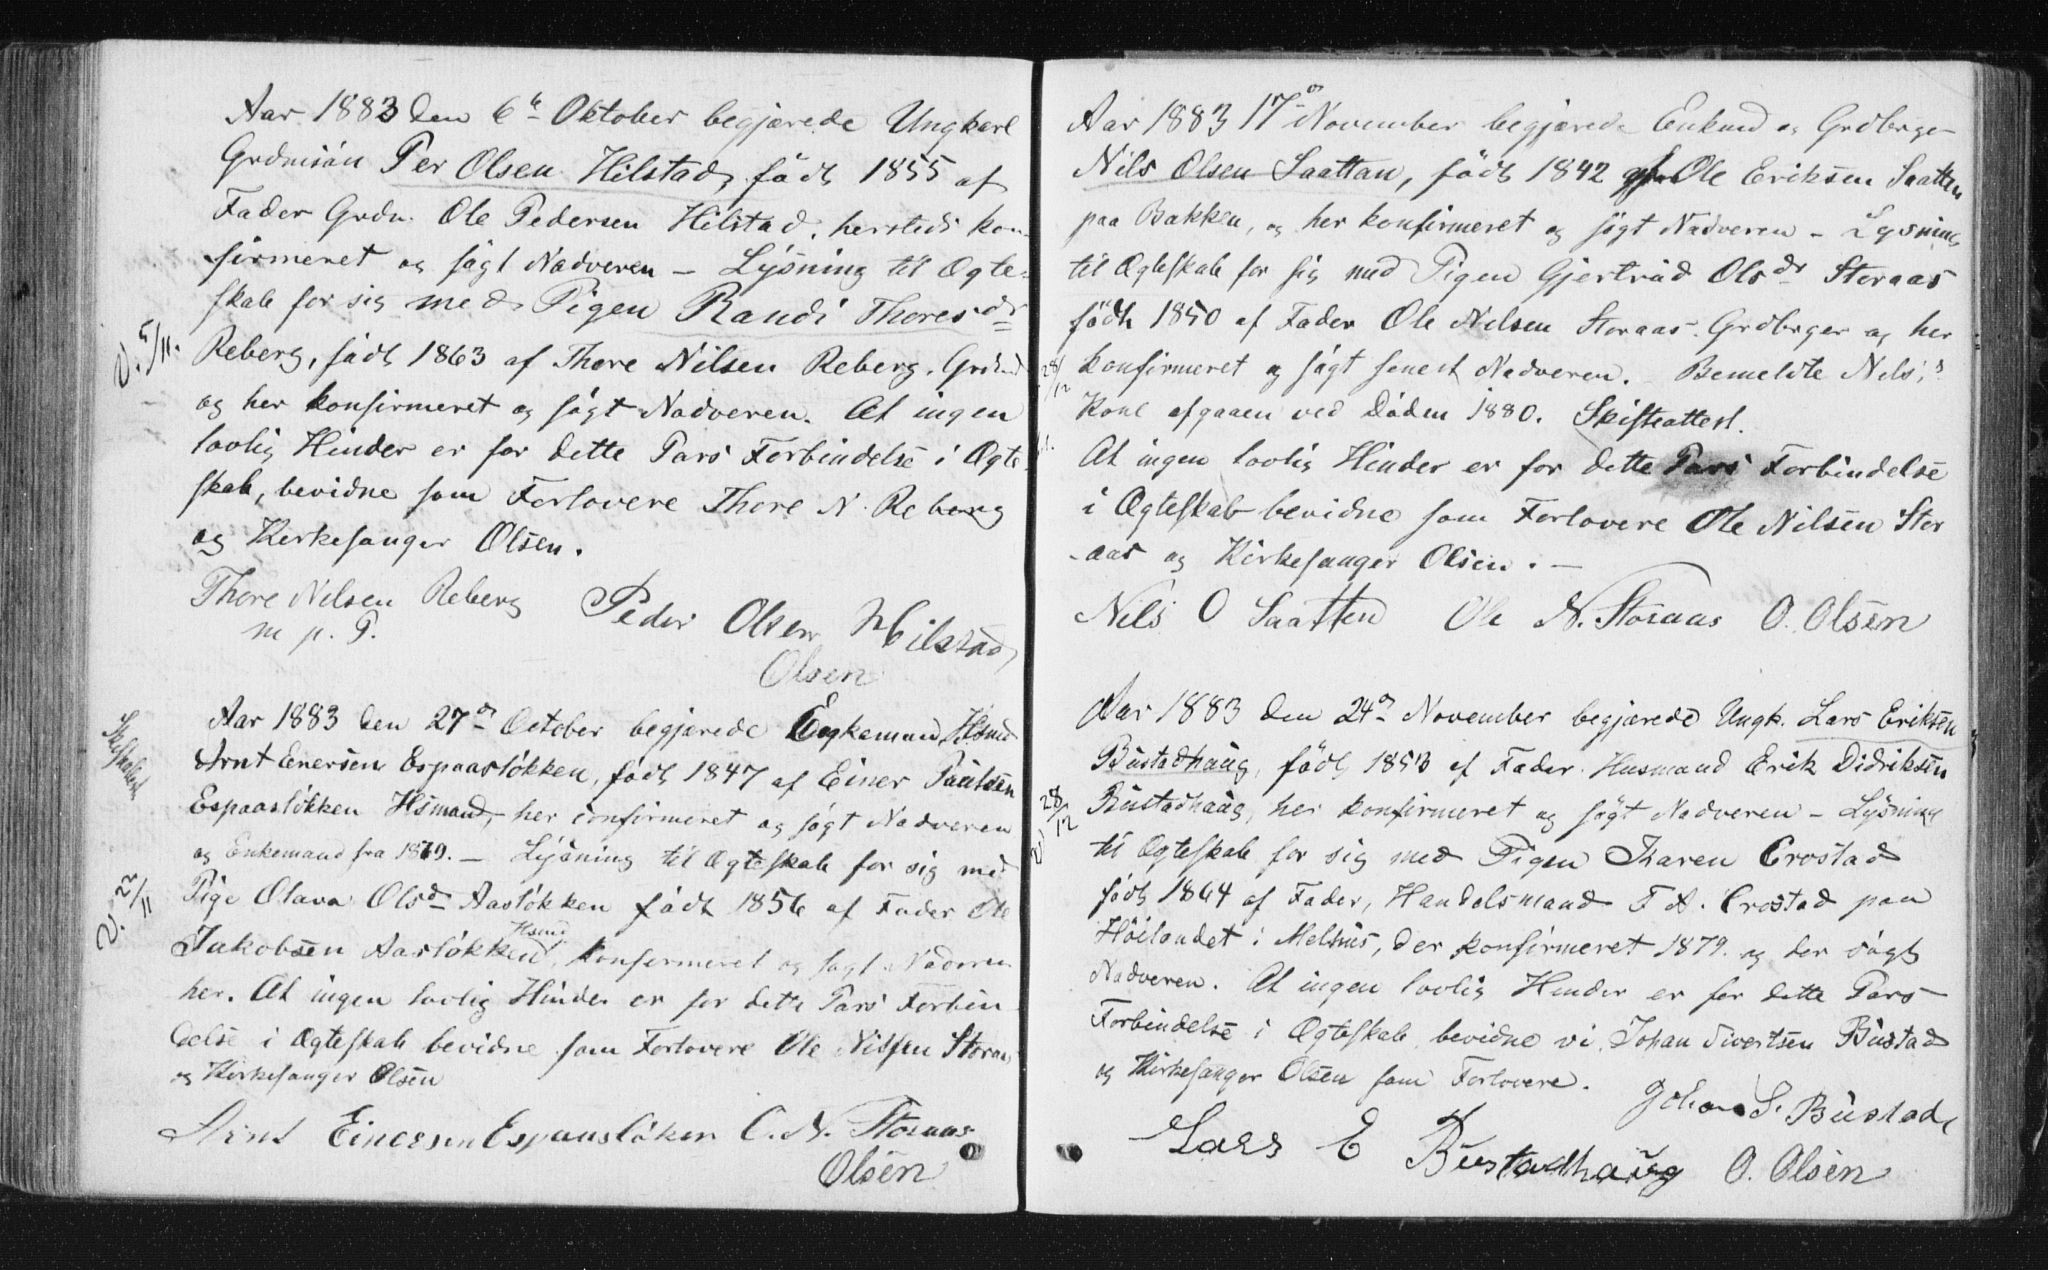 Aar 1883 den 6te Oktober begjærede Ungkarl
Grdmsön Per Olsen Hilstad, födt 1855 af
Fader Grdm. Ole Pedersen Hilstad, hersteds kon-
firmeret og sögt Nadveren – Lysning til Ægte-
skab for sig med Pigen Randi Thoresdr
V. 5/11.
Reberg, födt 1863 af Thore Nilsen Reberg, Grdmd
og her konfirmeret og sögt Nadveren. At ingen
lovlig Hinder er for dette Pars Forbindelse i Ægte-
skab, bevidne som Forlovere Thore N. Reberg
og Kirkesanger Olsen.
Thore Nilsen Reberg Peder Olsen Hilstad,
m p. P.
Olsen
Aar 1883 den 27de October begjærede Enkemand Hsmd
Skifteattest
Arnt Enersen Espaasløkken, födt 1847 af Einer Paulsen
Espaaslökken Hsmand, her confirmeret og sögt Nadveren
og Enkemand fra 1879. – Lysning til Ægteskab for sig med
V. 22/11
Pige Olava Olsd Aaslökken födt 1856 af Fader Ole
Jakobsen Aaslökken Hsmd, konfirmeret og sögt Nadveren
her. At ingen lovlig Hinder er for dette Pars Forbin-
delse i Ægteskab bevidne som Forlovere Ole Nilsen Storaas
og Kirkesanger Olsen
Arnt Einersen Espaaslöken O. N. Storaas
Olsen
Aar 1883 17de November begjærede Enkmd og Grdbrger
Nils Olsen Saattan, födt 1842 Ole Eriksen Saatten
paa Bakken, og her konfirmeret og sögt Nadveren – Lysning
til Ægteskab for sig med Pigen Gjertrud Olsdr Storaas
födt 1850 af Fader Ole Nilsen Storaas. Grdbrger og her
28/12
konfirmeret og sögt senest Nadveren. Bemeldte Nils's
Kone afgaaen ved Döden 1880. Skifteattest.
At ingen lovlig Hinder er for dette Pars Forbindelse
i Ægteskab bevidne som Forlovere Ole Nilsen Stor
-aas og Kirkesanger Olsen. –
Nils O Saatten Ole N. Storaas O. Olsen
Aar 1883 den 24de November begjærede Ungk. Lars Eriksen
Bustadhaug, födt 1853 af Fader Husmand Erik Didriksen
V. 28/12
Bustadhaug, her konfirmeret og sögt Nadveren – Lysning
til Ægteskab for sig med Pigen Karen Crostad
födt 1864 af Fader, Handelsmand T A. Crostad paa
Höilandet i Melhus, der konfirmeret 1879. og der sögt
Nadveren. At ingen lovlig Hinder er for dette Pars
Forbindelse i Ægteskab bevidne vi Johan Sivertsen Bustad
og Kirkesanger Olsen som Forlovere.
Johan S. Bustad,
Lars E Bustadhaug O. Olsen